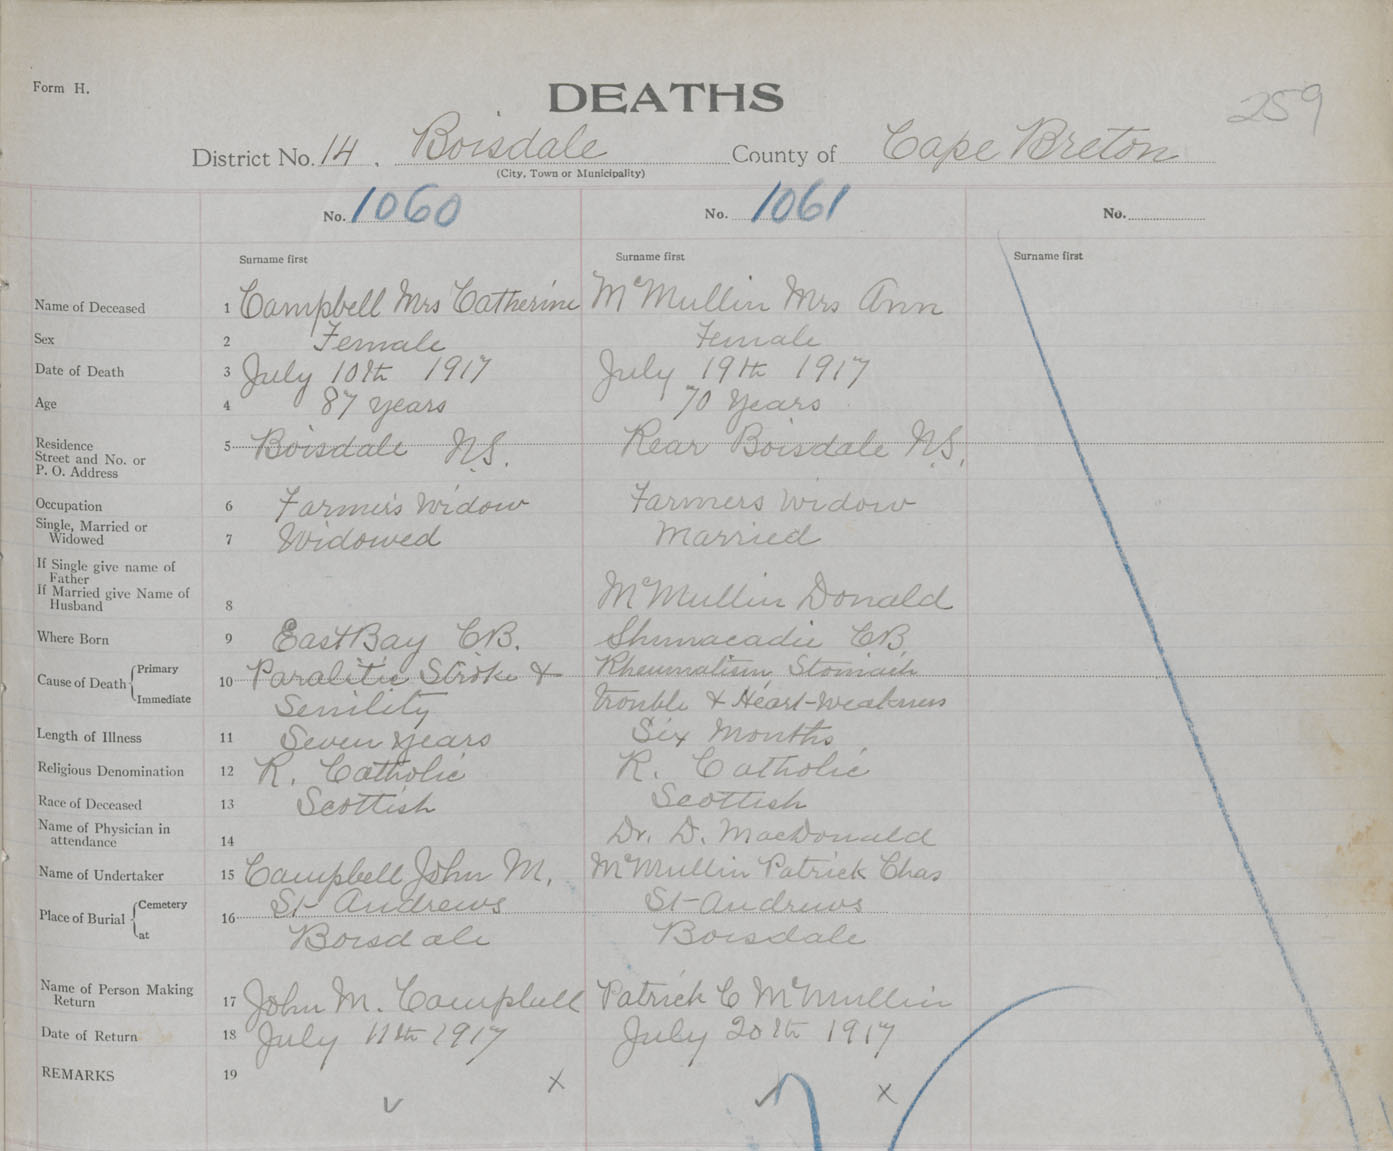 Form H.
DEATHS
259
District No. 14. Boisdale County of Cape Breton
(City, Town or Municipality)
No. 1060 No. 1061 No.
Surname first Surname first Surname first
Name of Deceased 1 Campbell Mrs Catherine McMullin Mrs Ann
Sex 2 Female Female
Date of Death 3 July 10th 1917 July 19th 1917
Age 4 87 years 70 years
Residence
Street and No. or
P. O. Address
5 Boisdale N.S. Rear Boisdale N.S.
Occupation 6 Farmers Widow Farmers Widow
Single, Married or
Widowed 7 Widowed Married
If Single give name of
Father
If Married give Name of
Husband 8 McMullin Donald
Where Born 9 East Bay C.B. Shunacadie C.B.
Cause of Death { Primary
Immediate
10 Paralitic Stroke & Rheumatism, Stomach
Senility trouble & Heart-Weakness
Length of Illness 11 Seven years Six Months
Religious Denomination 12 R. Catholic R. Catholic
Race of Deceased 13 Scottish Scottish
Name of Physician in
attendance 14 Dr. D. MacDonald
Name of Undertaker 15 Campbell John M. McMullin Patrick Chas
Place of Burial { Cemetery
at
16 St-Andrews St-Andrews
Boisdale Boisdale
Name of Person Making
Return 17 John M. Campbell Patrick C McMullin
Date of Return 18 July 11th 1917 July 20th 1917
REMARKS 19